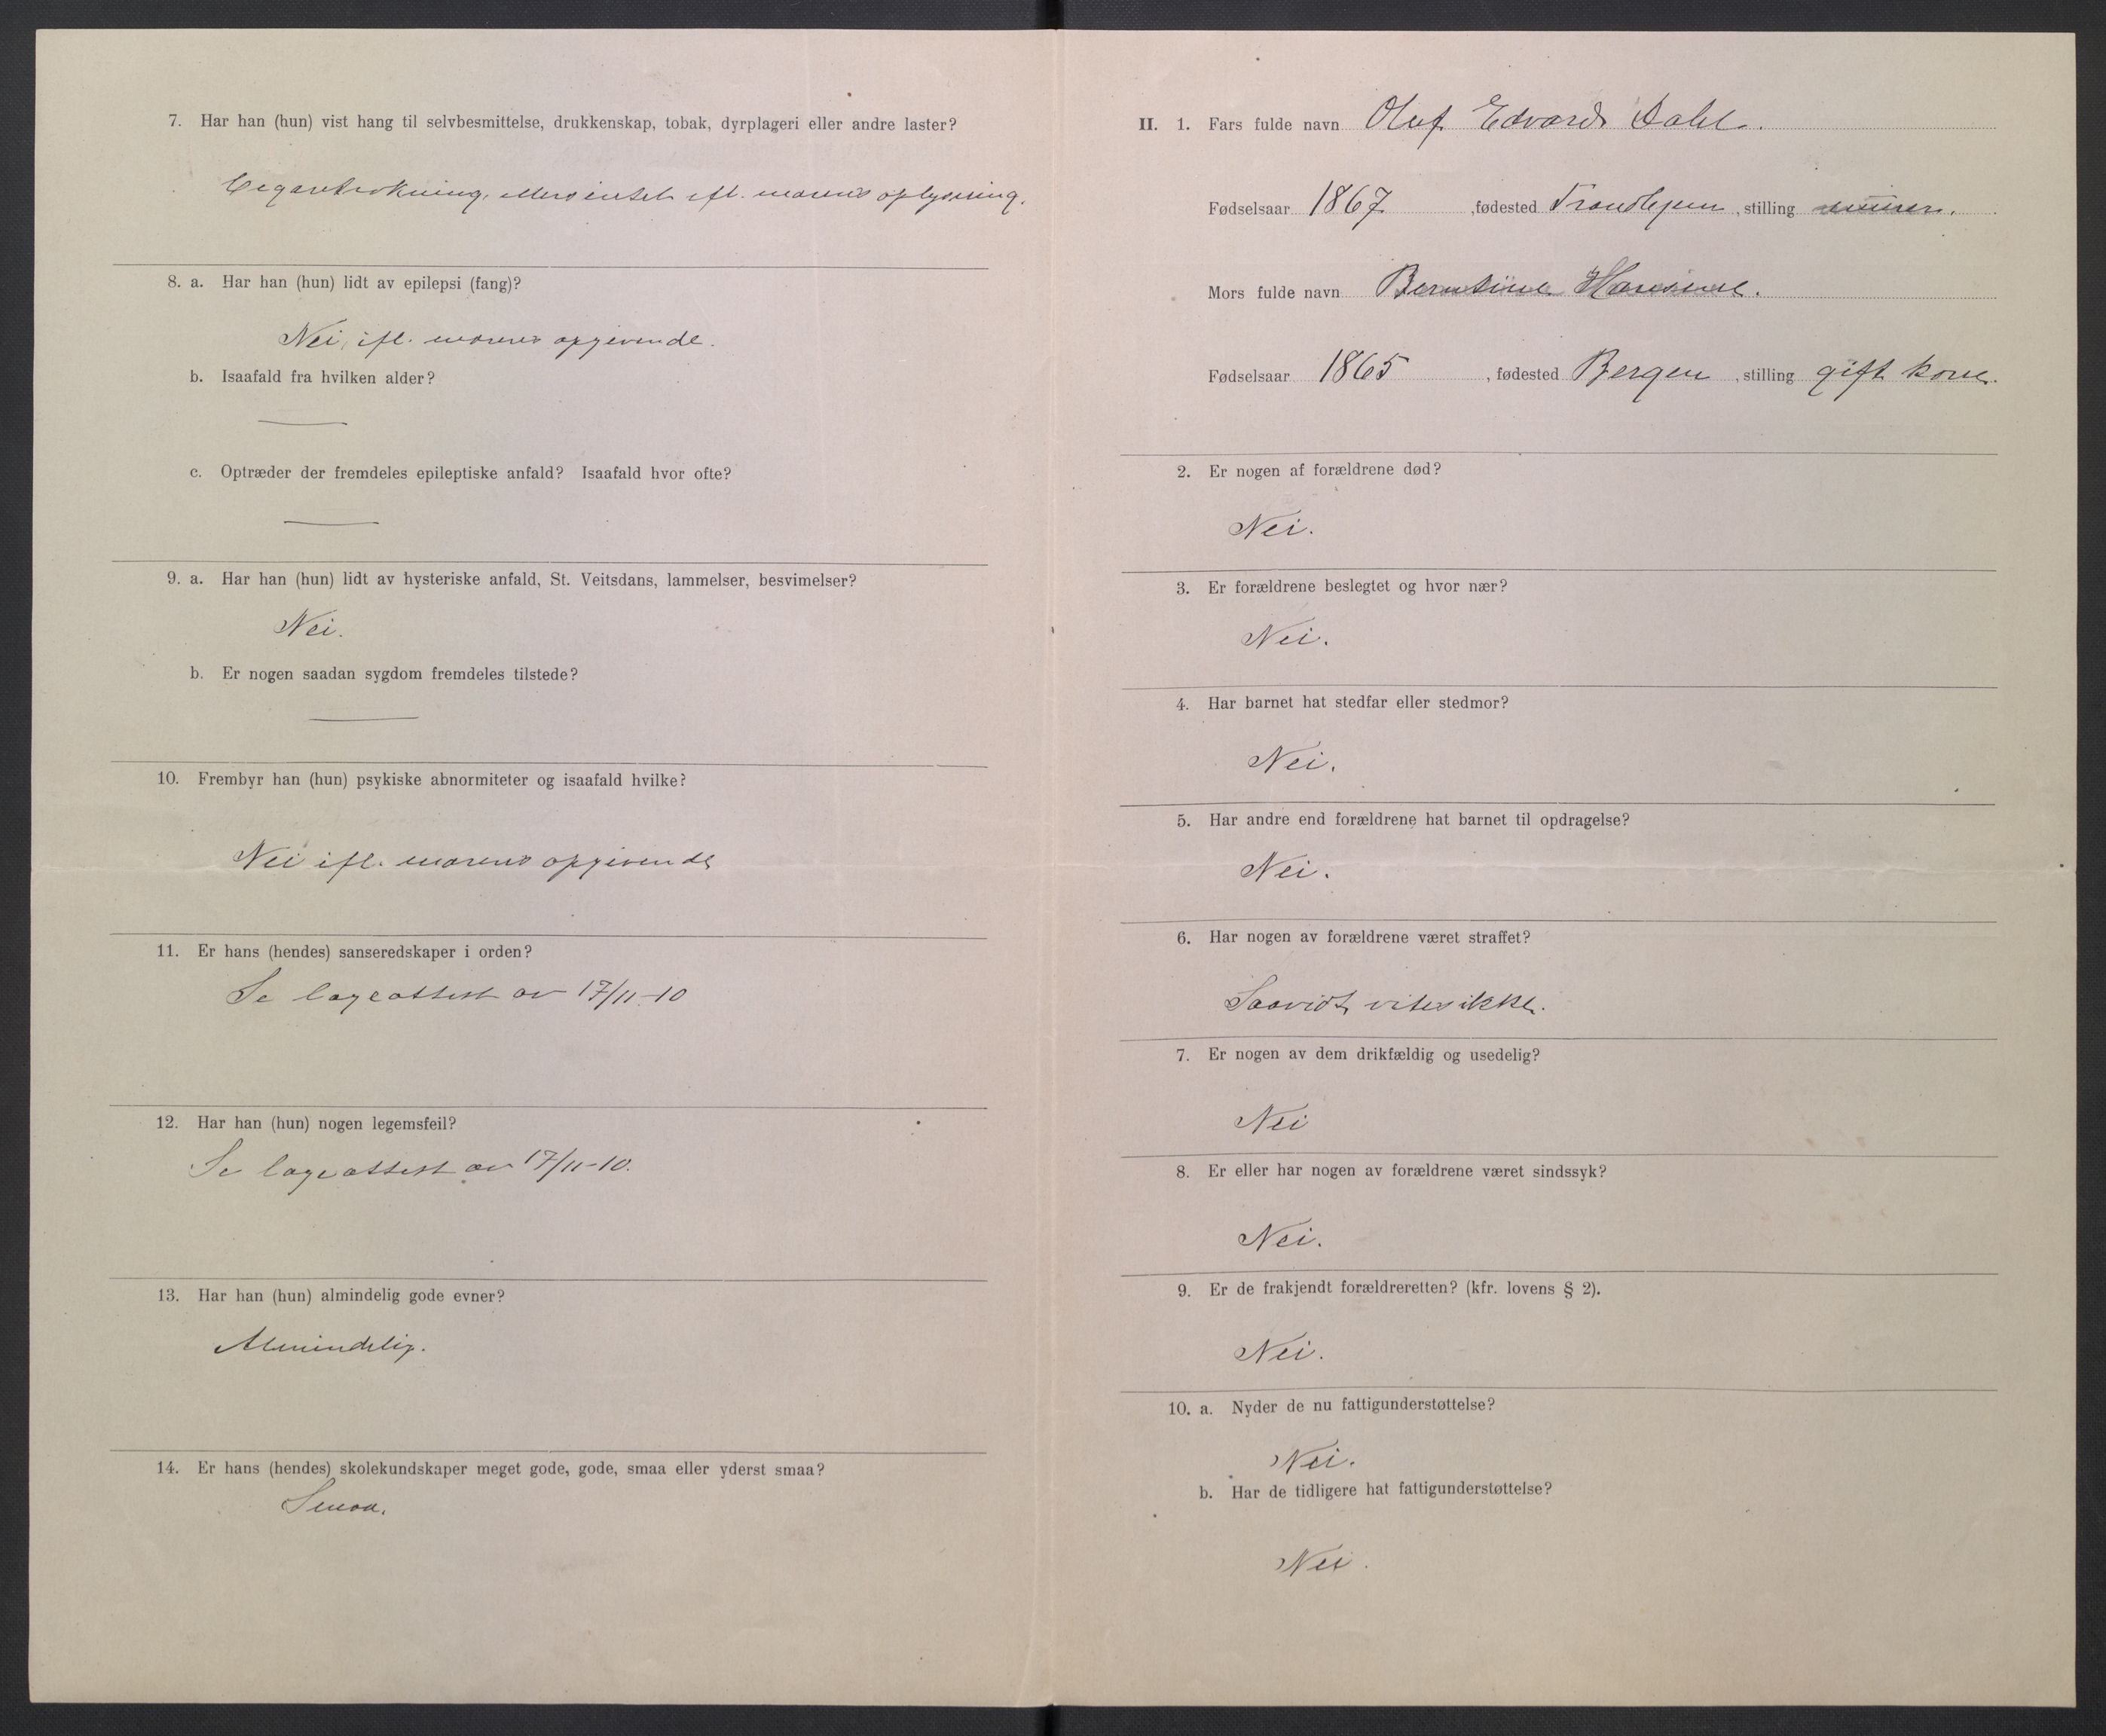 7. Har han (hun) vist hang til selvbesmittelse, drukkenskap, tobak, dyrplageri eller andre laster?
Cegaretrøkning, ellers intet ifl. morens oplysning.
8. a. Har han (hun) lidt av epilepsi (fang)?
Nei, ifl. morens opgivende.
b. Isaafald fra hvilken alder?
c. Optræder der fremdeles epileptiske anfald? Isaafald hvor ofte?
9. a. Har han (hun) lidt av hysteriske anfald, St. Veitsdans, lammelser, besvimelser?
Nei.
b. Er nogen saadan sygdom fremdeles tilstede?
10. Frembyr han (hun) psykiske abnormiteter og isaafald hvilke?
Nei ifl. morens opgivende
11. Er hans (hendes) sanseredskaper i orden?
Se lægeattest av 17/11-10
12. Har han (hun) nogen legemsfeil?
Se lægeattest av 17/11-10.
13. Har han (hun) almindelig gode evner?
Almindelig.
14. Er hans (hendes) skolekundskaper meget gode, gode, smaa eller yderst smaa?
Smaa.
II. 1. Fars fulde navn Oluf Edvard Dahl.
Fødselsaar 1867, fødested Trondhjem, stilling murer.
Mors fulde navn Berntine Hansine.
Fødselsaar 1865, fødested Bergen, stilling gift kone.
2. Er nogen af forældrene død?
Nei.
3. Er forældrene beslegtet og hvor nær?
Nei.
4. Har barnet hat stedfar eller stedmor?
Nei.
5. Har andre end forældrene hat barnet til opdragelse?
Nei.
6. Har nogen av forældrene været straffet?
Saavidt vites ikke.
7. Er nogen av dem drikfældig og usedelig?
Nei
8. Er eller har nogen av forældrene været sindssyk?
Nei.
9. Er de frakjendt forældreretten? (kfr. lovens § 2).
Nei.
10. a. Nyder de nu fattigunderstøttelse?
Nei.
b. Har de tidligere hat fattigunderstøttelse?
Nei.